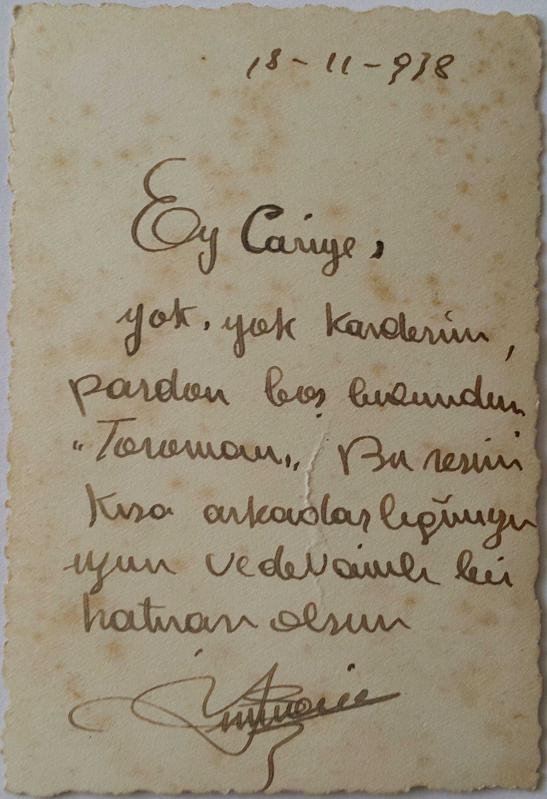 18-11-938
Ey Cariye,
yok, yok kardeşim,
pardon boş bulundum
"Toroman„ Bu resim
kısa arkadaşlığımızın
uzun ve devamlı bir
hatırası olsun